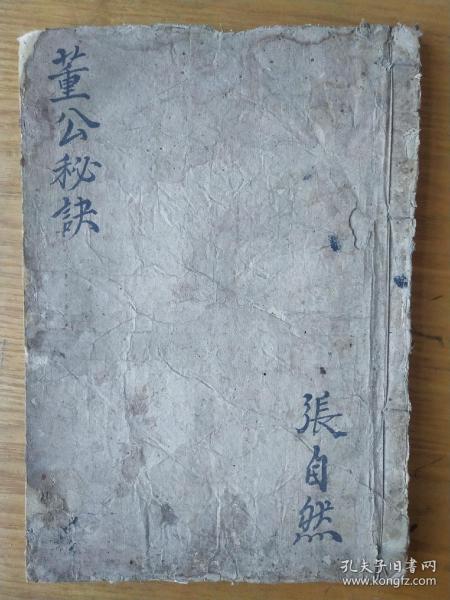 董公秘訣
張自然
孔夫子旧书网
www.kongfz.com